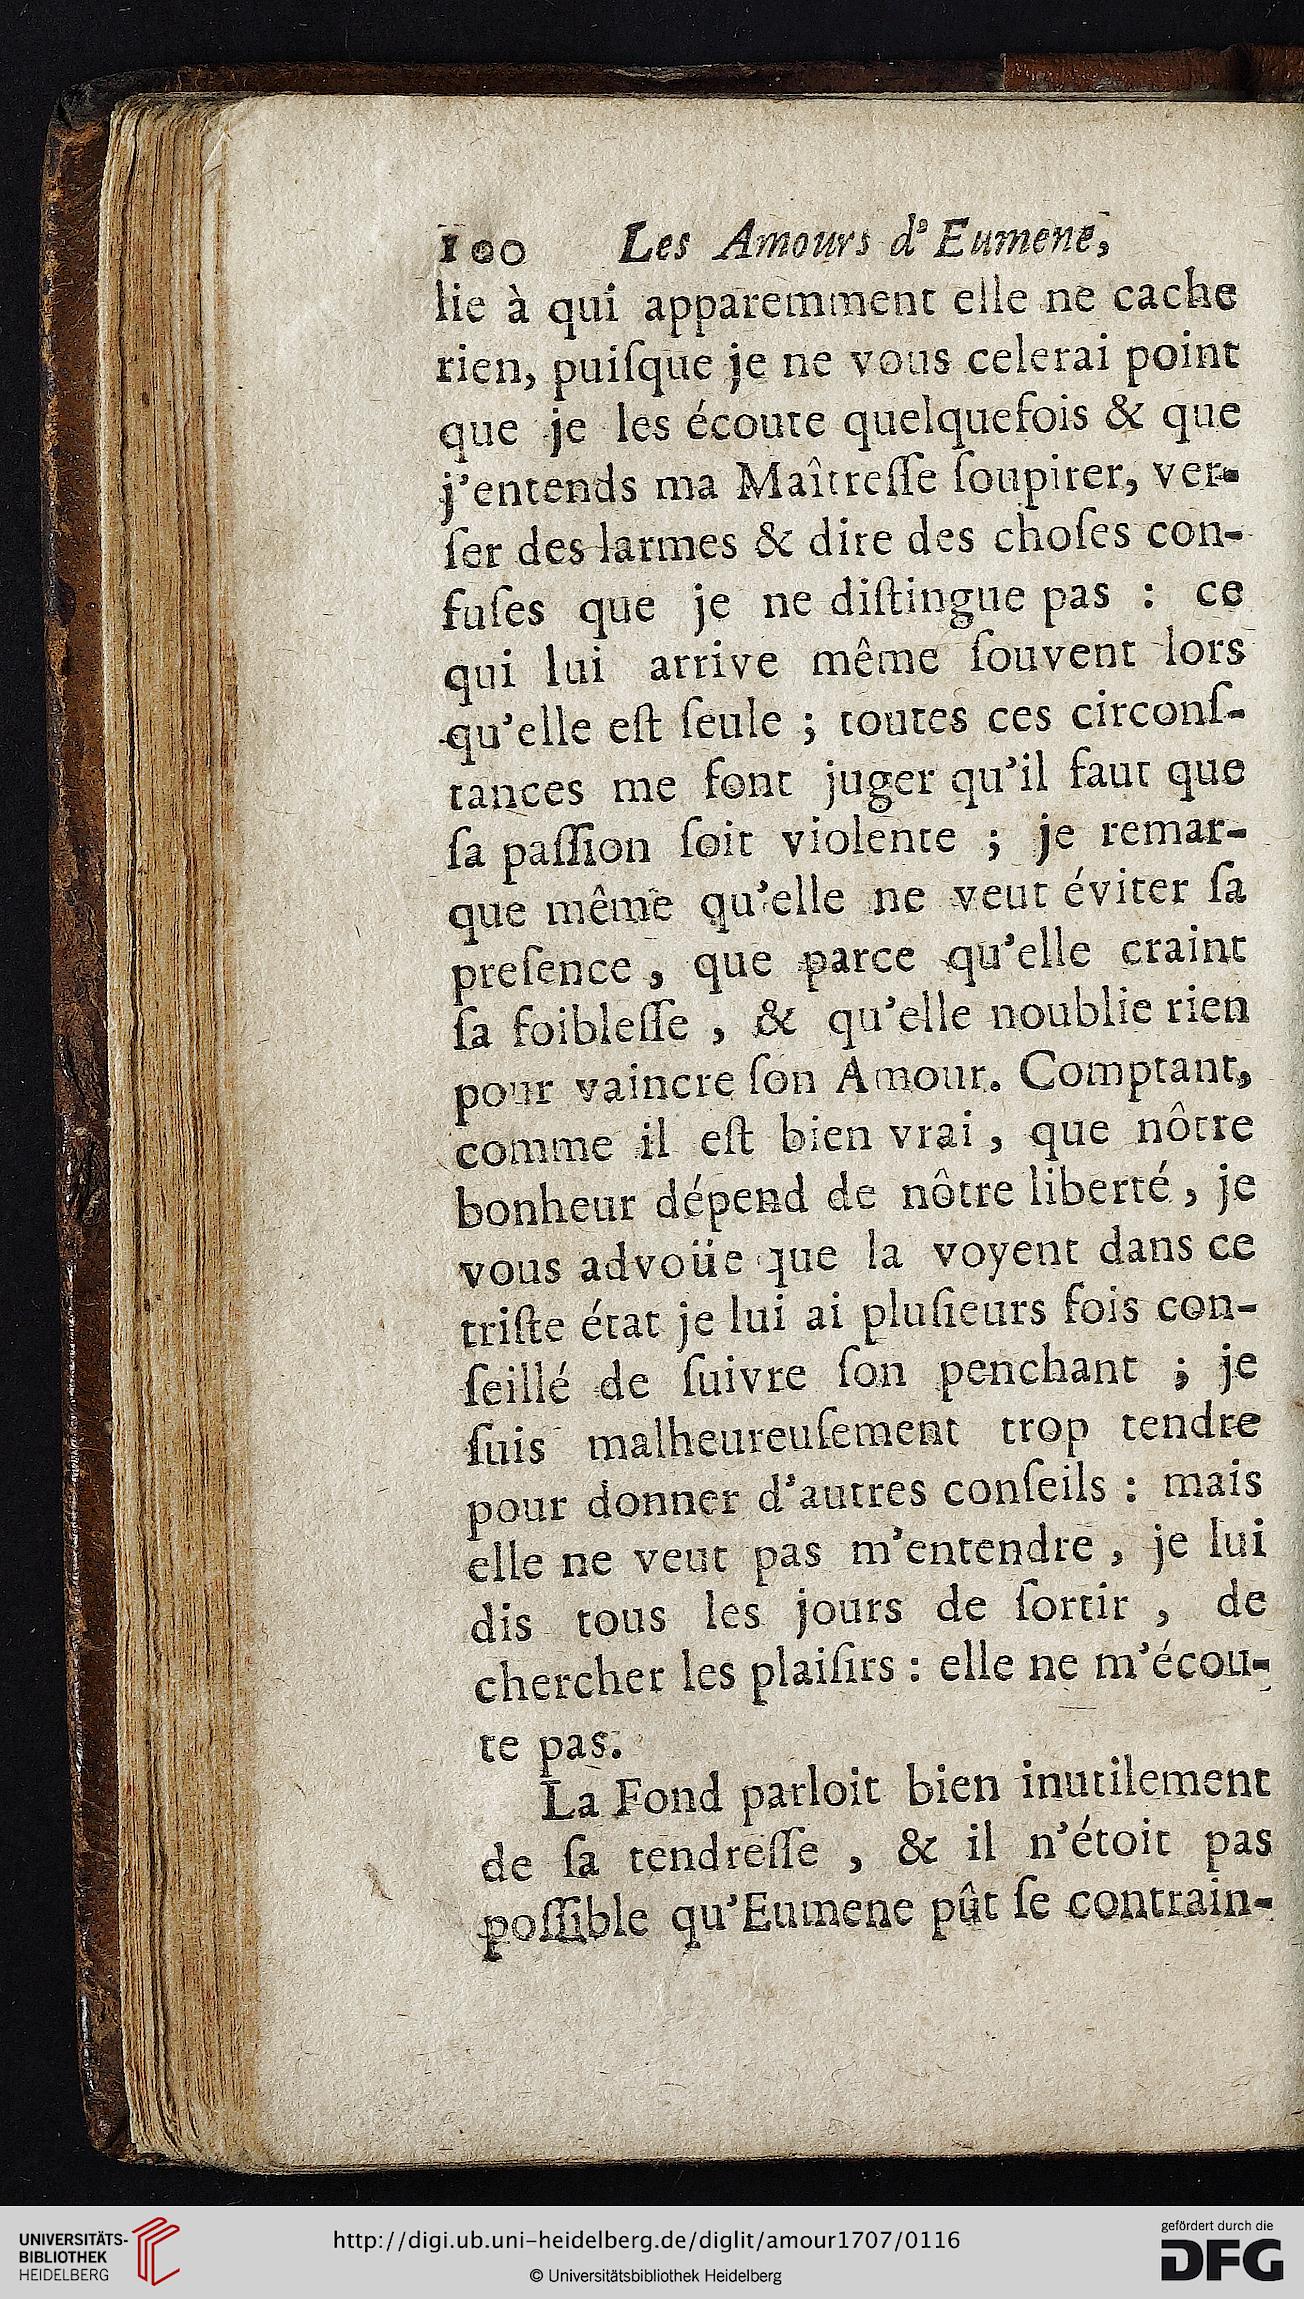 100 Les Amours d'Eumene,
lie à qui apparemment elle ne cache
rien, puiſque je ne vous celerai point
que je les écoute quelquefois & que
j'entends ma Maîtreſſe ſoupirer, ver-
ſer des larmes & dire des choſes con-
fuſes que je ne diſtingue pas : ce
qui lui arrive même ſouvent lors
qu'elle eſt ſeule ; toutes ces circonſ-
tances me font juger qu'il faut que
ſa paſſion ſoit violente ; je remar-
que même qu'elle ne veut éviter ſa
preſence, que parce qu'elle craint
ſa foibleſſe, & qu'elle noublie rien
pour vaincre ſon Amour. Comptant,
comme il eſt bien vrai, que nôtre
bonheur dépend de nôtre liberté, je
vous advoüe que la voyent dans ce
triſte état je lui ai pluſieurs fois con-
ſeillé de ſuivre ſon penchant ; je
ſuis malheureuſement trop tendre
pour donner d'autres conſeils : mais
elle ne veut pas m'entendre, je lui
dis tous les jours de ſortir, de
chercher les plaiſirs : elle ne m'écou-
te pas.
La Fond parloit bien inutilement
de ſa tendreſſe, & il n'étoit pas
poſſible qu'Eumene pût ſe contrain-
UNIVERSITÄTS-
BIBLIOTHEK
HEIDELBERG
http://digi.ub.uni-heidelberg.de/diglit/amour1707/0116
© Universitätsbibliothek Heidelberg
gefördert durch die
DFG